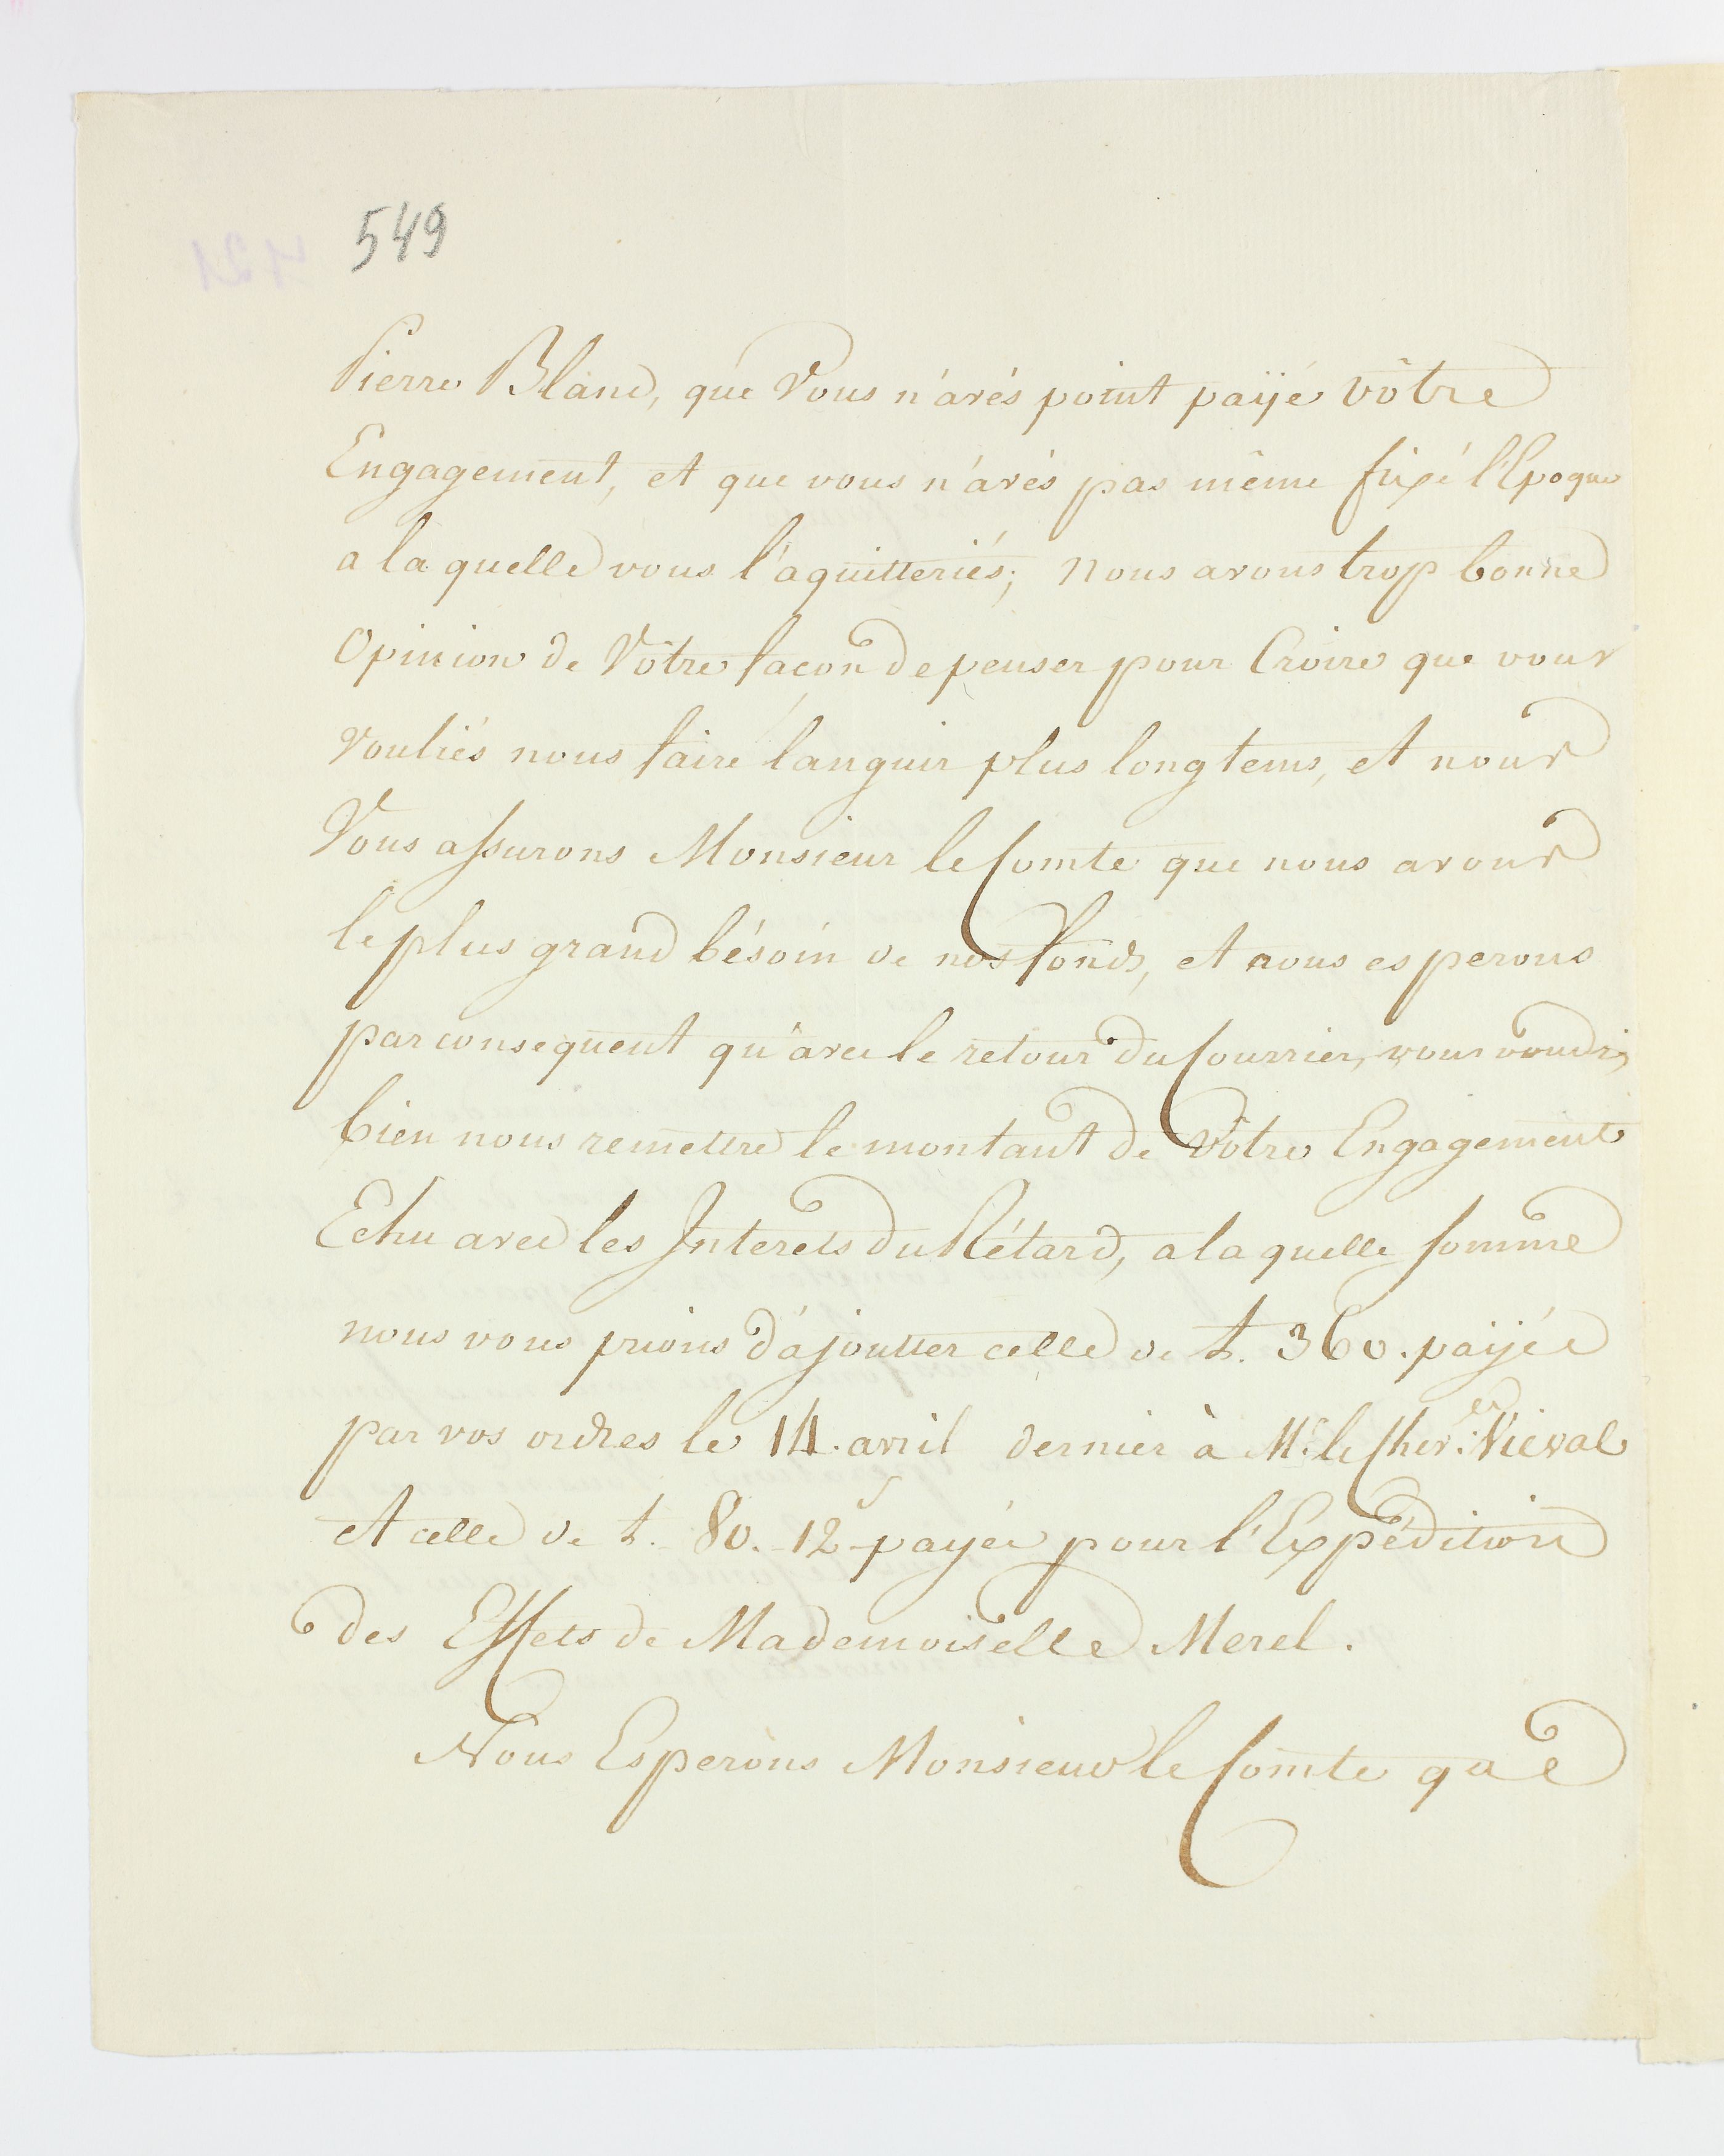 549
Pierre Bland, que Vous n'avés point paÿé vôtre
Engagement, et que vous n'avés pas même fixé l'Epoque
a la quelle vous l'aquitteriés; Nous avons trop bonne
Opinion de Vôtre façon de penser pour Croire que vous
vouliés nous faire languir plus longtems, et nous
Vous assurons Monsieur le Comte que nous avons
le plus grand bésoin de nos fonds, et nous esperons
par consequent qu'avec le retour du Courrier, vous voudrés
bien nous remettre le montant de Vôtre Engagement
Echu avec les Interets du Rétard, a la quelle somme
nous vous prions d'ajoutter celle de t. 360. paÿée
par vos ordres le 14. avril dernier à Mr. le Cher. Vieval
et celle de t. 80. 12 s payée pour l'Expédition
des Effets de Mademoiselle Merel.
Nous Esperons Monsieur le Comte que